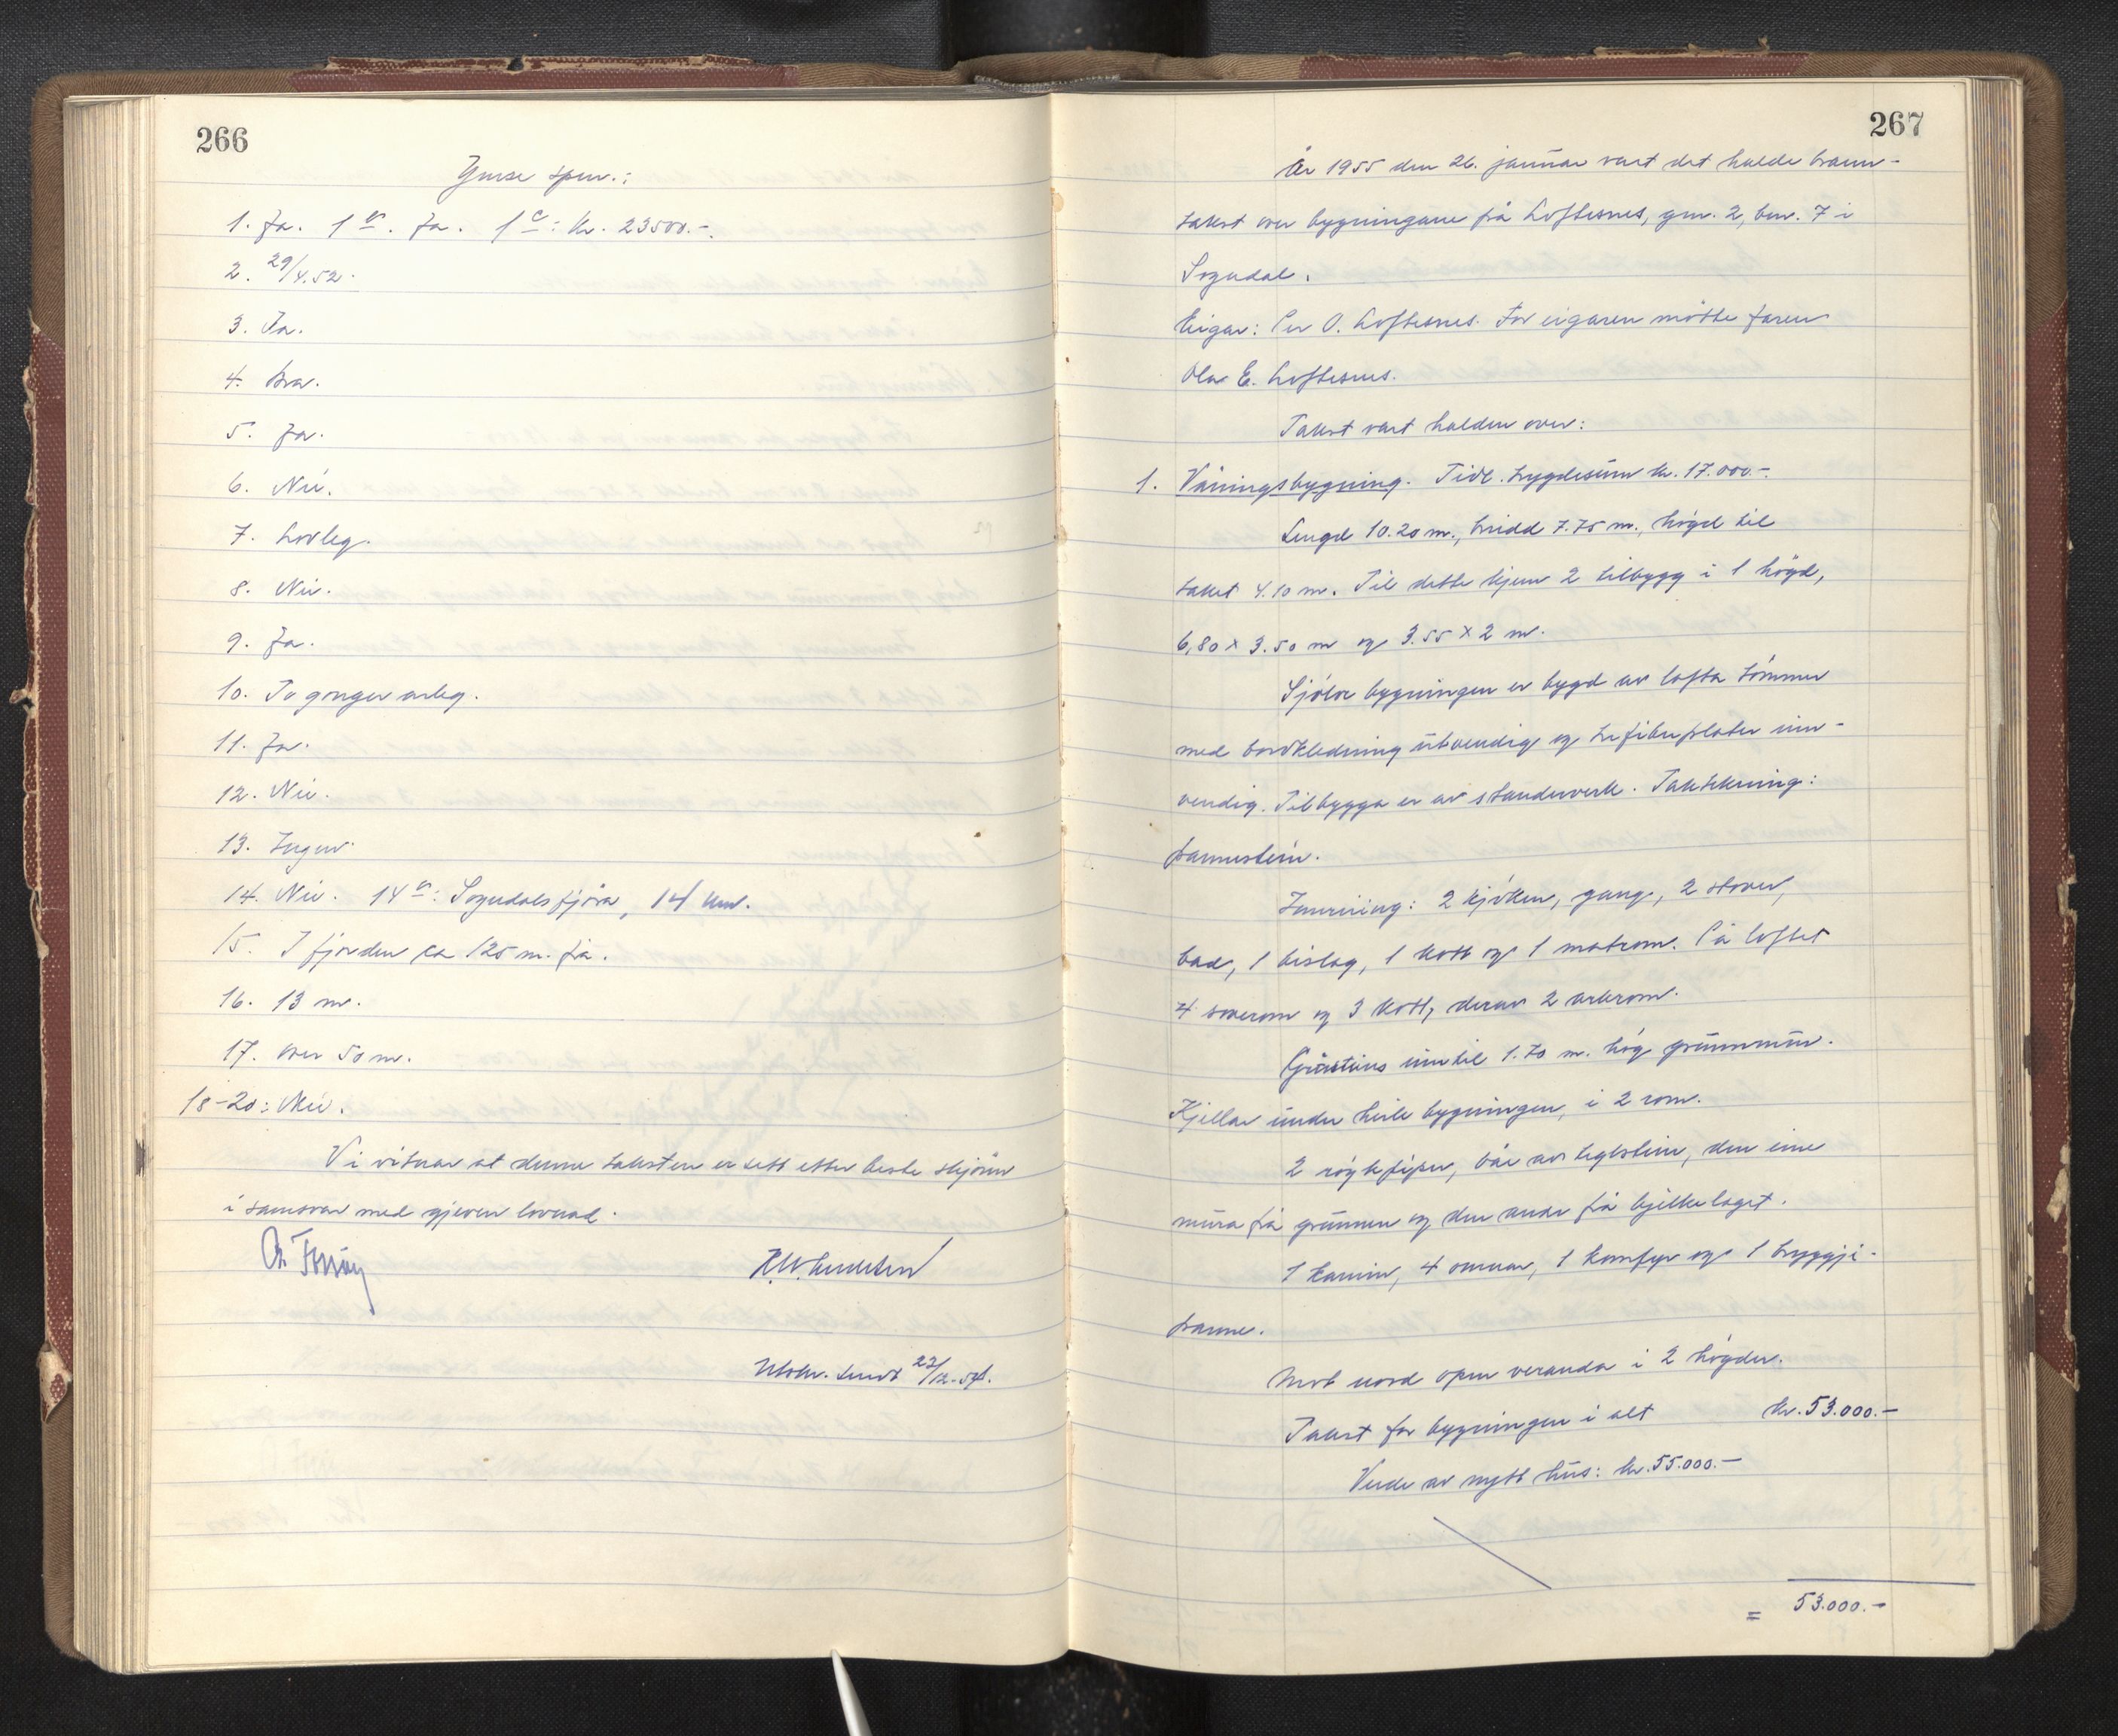 266
Ymse spm.:
1. Ja. 1a. Ja. 1c: kr. 23500.-.
2. 29/4.52.
3. Ja.
4. Bra.
5. Ja.
6. Nei.
7. Lovleg.
8. Nei.
9. Ja.
10. To gonger årleg.
11. Ja.
12. Nei.
13. Ingen.
14. Nei. 14a: Sogndalsfjøra, 14 km.
15. I fjorden ca 125 m. frå.
16. 13 m.
17. over 50 m.
18-20: Nei.
Vi vitnar at denne taksten er sett etter beste skjønn
i samsvar med gjeven lovnad.
Utskr. sendt 23/12-54.
267
År 1955 den 26. januar vart det halde brann-
takst over bygningane på Loftesnes, gnr. 2, bnr. 7 i
Sogndal.
Eigar: Per O. Loftesnes. For eigaren møtte faren
Ola E. Loftesnes.
Takst vart halden over:
1. Våningsbygning. Tidl. trygdesum kr. 17.000.-.
Lengd 10.20 m., breidd 7.75 m., høgd til
taket 4.10 m. Til dette kjem 2 tilbygg i 1 høgd,
6,80 x 3.50 m og 3.55 x 2 m.
Sjølve bygningen er bygd av lafta tømmer
med bordkledning utvendig og trefiberplater inn-
vendig. Tilbygga er av standerverk. Taktekning:
pannestein.
Innreiing: 2 kjøken, gang, 2 stover,
bad, 1 bislag, 1 kott og 1 matrom. På loftet
4 soverom og 3 kott, derav 2 arkrom.
Gråsteins inntil 1.70 m. høg grunnmur.
Kjellar under heile bygningen, i 2 rom.
2 røykpiper, båe av teglstein, den eine
mura frå grunnen og den andre frå bjelkelaget.
1 kamin, 4 omnar, 1 komfyr og 1 bryggje-
panne.
Mot nord open veranda i 2 høgder.
Takst for bygningen i alt kr. 53.000.-
Verde av nytt hus: kr. 55.000.-
= 53.000.-